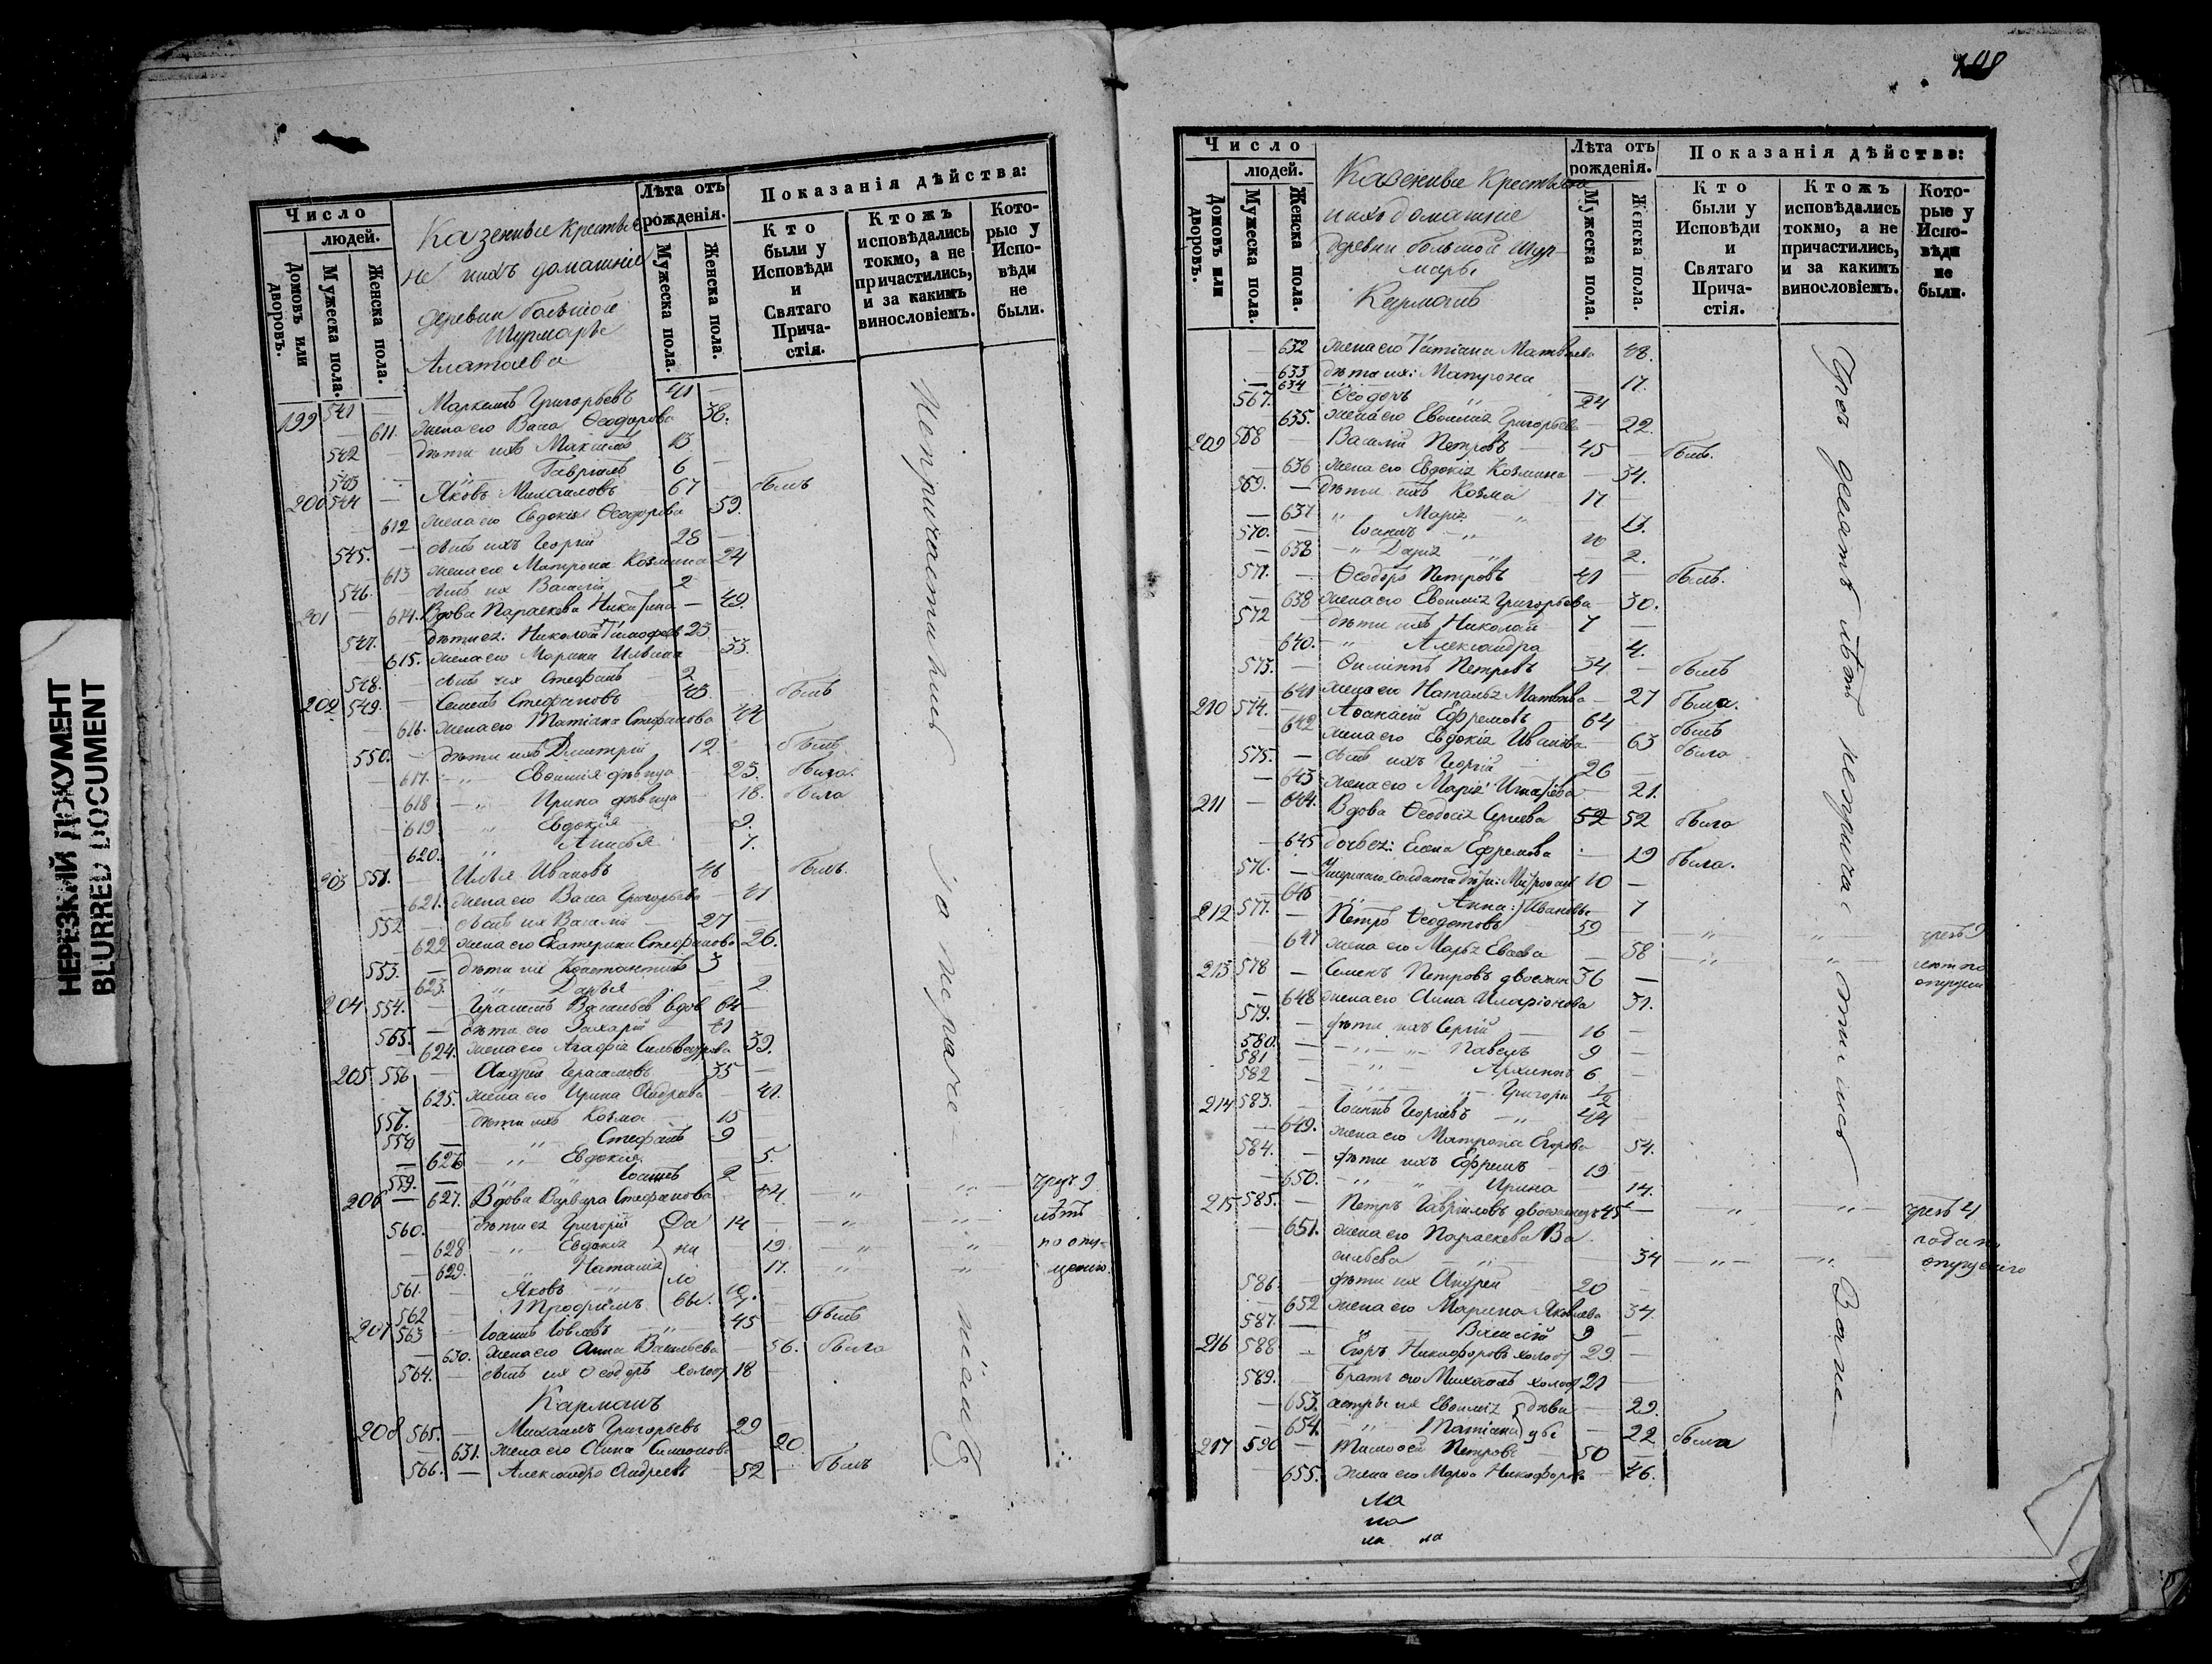 НЕРЕЗКИЙ ДОКУМЕНТ
BLURRED DOCUMENT
Число
людей.
Домовъ или дворовъ.
Мужеска пола.
Женска пола.
Казенные крестья
не ихъ домашніе
деревни большое
Шурмары
Алатаева
Лѣта отъ рожденія.
Мужеска пола.
Женска пола.
Показанія дѣйства:
Кто были у Исповѣди и Святаго Причастія.
Ктожъ исповѣдались токмо, а не причастились, и за какимъ винословіемъ.
Которые у Исповѣди не были.
199 541 — Григорьевъ 41 —
— 611. жена его Васа Ѳеодорова 38.
542 — дѣти ихъ Максимъ 13
543 — " Гавріилъ 6 —
200 544 — Яковъ Михаиловъ 67 — былъ
— 612 жена его Евдокія Ѳеодорова 59.
545. — сынъ ихъ Георгій 28 —
613 жена его Матрона Козмина 24
546. — сынъ их Василій 2 —
201 614. Вдова Параскева Никитина — 49.
547. дѣти ея: Николай Тимофеев 23
— 615. жена его Марина Ильина — 33.
548. — сынъ их Стефанъ 2
202 549. — Семенъ Стефановъ 43. былъ
— 616. жена его Татіана Стефанова 44
550. — дѣти ихъ Димитрій 12 былъ
— 617. — " Евѳимія дѣвица 23. была.
— 618 — " Ирина дѣвица 18. была
— 619 — " Евдокія 9.
620. " Анисья 7.
203 551. — Илья Ивановъ 46 былъ.
— 621. жена его Васа Григорьева — 41
552 — сынъ их Василій 27 —
— 622 жена его Екатерина Стефанова 26.
553. — дѣти их Константинъ 3
— 623. " Дарья — 2
204 554. — Герасимъ Васильев вдов 64 —
555. — дѣти его Захарій 41
— 624. жена его Агафіа Сильвестрова 39.
205 556 — Андрей Герасимовъ 35 —
— 625. жена его Ирина Андреева — 41.
557. — дѣти ихъ Козма 15
558 — " Стефанъ 9
— 626 — " Евдокія 5.
559. — " Іоаннъ 2 —
206 — 627. Вдова Варвара Стефанова 44. " " чрез 9
560. — дѣти ея Григорій Да 14 — " " лѣтъ
— 628 — " Евдокія ни 19. — " " по опу-
— 629. " Наталія ло 17. " " щенію.
561. — Яковъ — " вы. 10.
562 — Трофимъ 7
207 563 — Іоаннъ Іовлевъ — 45 — былъ
— 630. жена его Анна Васильева 56. была
564. — сынъ их Ѳеодоръ холост 18
Карманъ
208 565. — Михаилъ Григорьевъ 29 —
— 631. жена его Анна Симеонова 20.
566. — Александръ Андреевъ — 52 былъ
Непричастились
Число
людей.
Домовъ или дворовъ.
Мужеска пола.
Женска пола.
Казенные крестьяне
и ихъ домашніе
деревни большое Шур-
мары
Карманъ
Лѣта отъ рожденія.
Мужеска пола.
Женска пола.
Показанія дѣйства:
Кто были у Исповѣди и Святаго Причастія.
Ктожъ исповѣдались токмо, а не причастились, и за какимъ винословіемъ.
Которые у Исповѣди не были.
— 632 жена его Татіана Матвѣева 48.
— 633 дѣти их: Матрона 17.
— 634
567. — Ѳеодоръ " 24
— 635. жена его Евѳимія Григорьева 22.
209 568 — Василій Петровъ 45 — былъ.
— 636 жена его Евдокія Козмина — 34.
569. — дѣти ихъ Козма 17 —
— 637 " Марія — " 13.
570. — Іоаннъ — " 10
— 638 — " Дарія — " 2.
571. — Ѳеодоръ Петровъ 41 — былъ.
— 638 жена его Евѳимія Григорьева — 30.
572 — дѣти ихъ Николай 7 —
— 640. — " Александра 4.
573. — Филиппъ Петровъ 34 — былъ
— 641 жена его Наталья Матвѣева — 27 была.
210 574. — Аѳанасій Ефремовъ — 64 — былъ
— 642 жена его Евдокія Иванова — 63 была
575. — сынъ ихъ Георгій 26
— 643 жена его Марія Игнатіева — 21.
211 — 644. Вдова Ѳеодосія Сергеева 52 52 была
— 645 дочь ея: Елена Ефремова — 19 была.
576. — солдата дѣти: Митрофанъ 10 —
— 646 — Анна: Ивановы — 7
212 577. — Петръ Ѳеодотовъ 59 — " — " — чрезъ 9
— 647 жена его Марья Евсева — 58 — " — " лѣт по
213 578 — Семенъ Петровъ двоежен 36 — опущен
— 648 жена его Анна Иларіонова 31.
579. — дѣти ихъ Сергій — 16 —
580. — " — " Павелъ 9 —
581 — " Архиппъ 6 —
582 — " — Григорій 1/2
214 583. — Іоаннъ Георгіевъ — " 44
— 649. жена его Матрона Егорова — 54.
584. — дѣти ихъ Ефремъ — 19 —
— 650. — " — " Ирина — 14.
215 585. — Петръ Гавриловъ двоеженецъ 45 — " — " чрезъ 4
— 651. жена его Параскева Ва года по
сильева — " — 34 — " — " опущенію
586. — дѣти их Андрей 20 —
— 652 жена его Марина Яковлева 34.
587. — " Василій 9 —
216 588 — Егоръ Никифоровъ холост 29 —
589. — Братъ его Михаилъ холост 21 —
— 653. сестры их Евѳимія дѣви — 29.
— 654. — " Татіана цы — 22 была
217 590 — Тимоѳей Петровъ — 50 —
— 655. жена его Марѳа Никифорова — 46.
чрез девять лѣтъ
Ванe
ла
на
ла ла